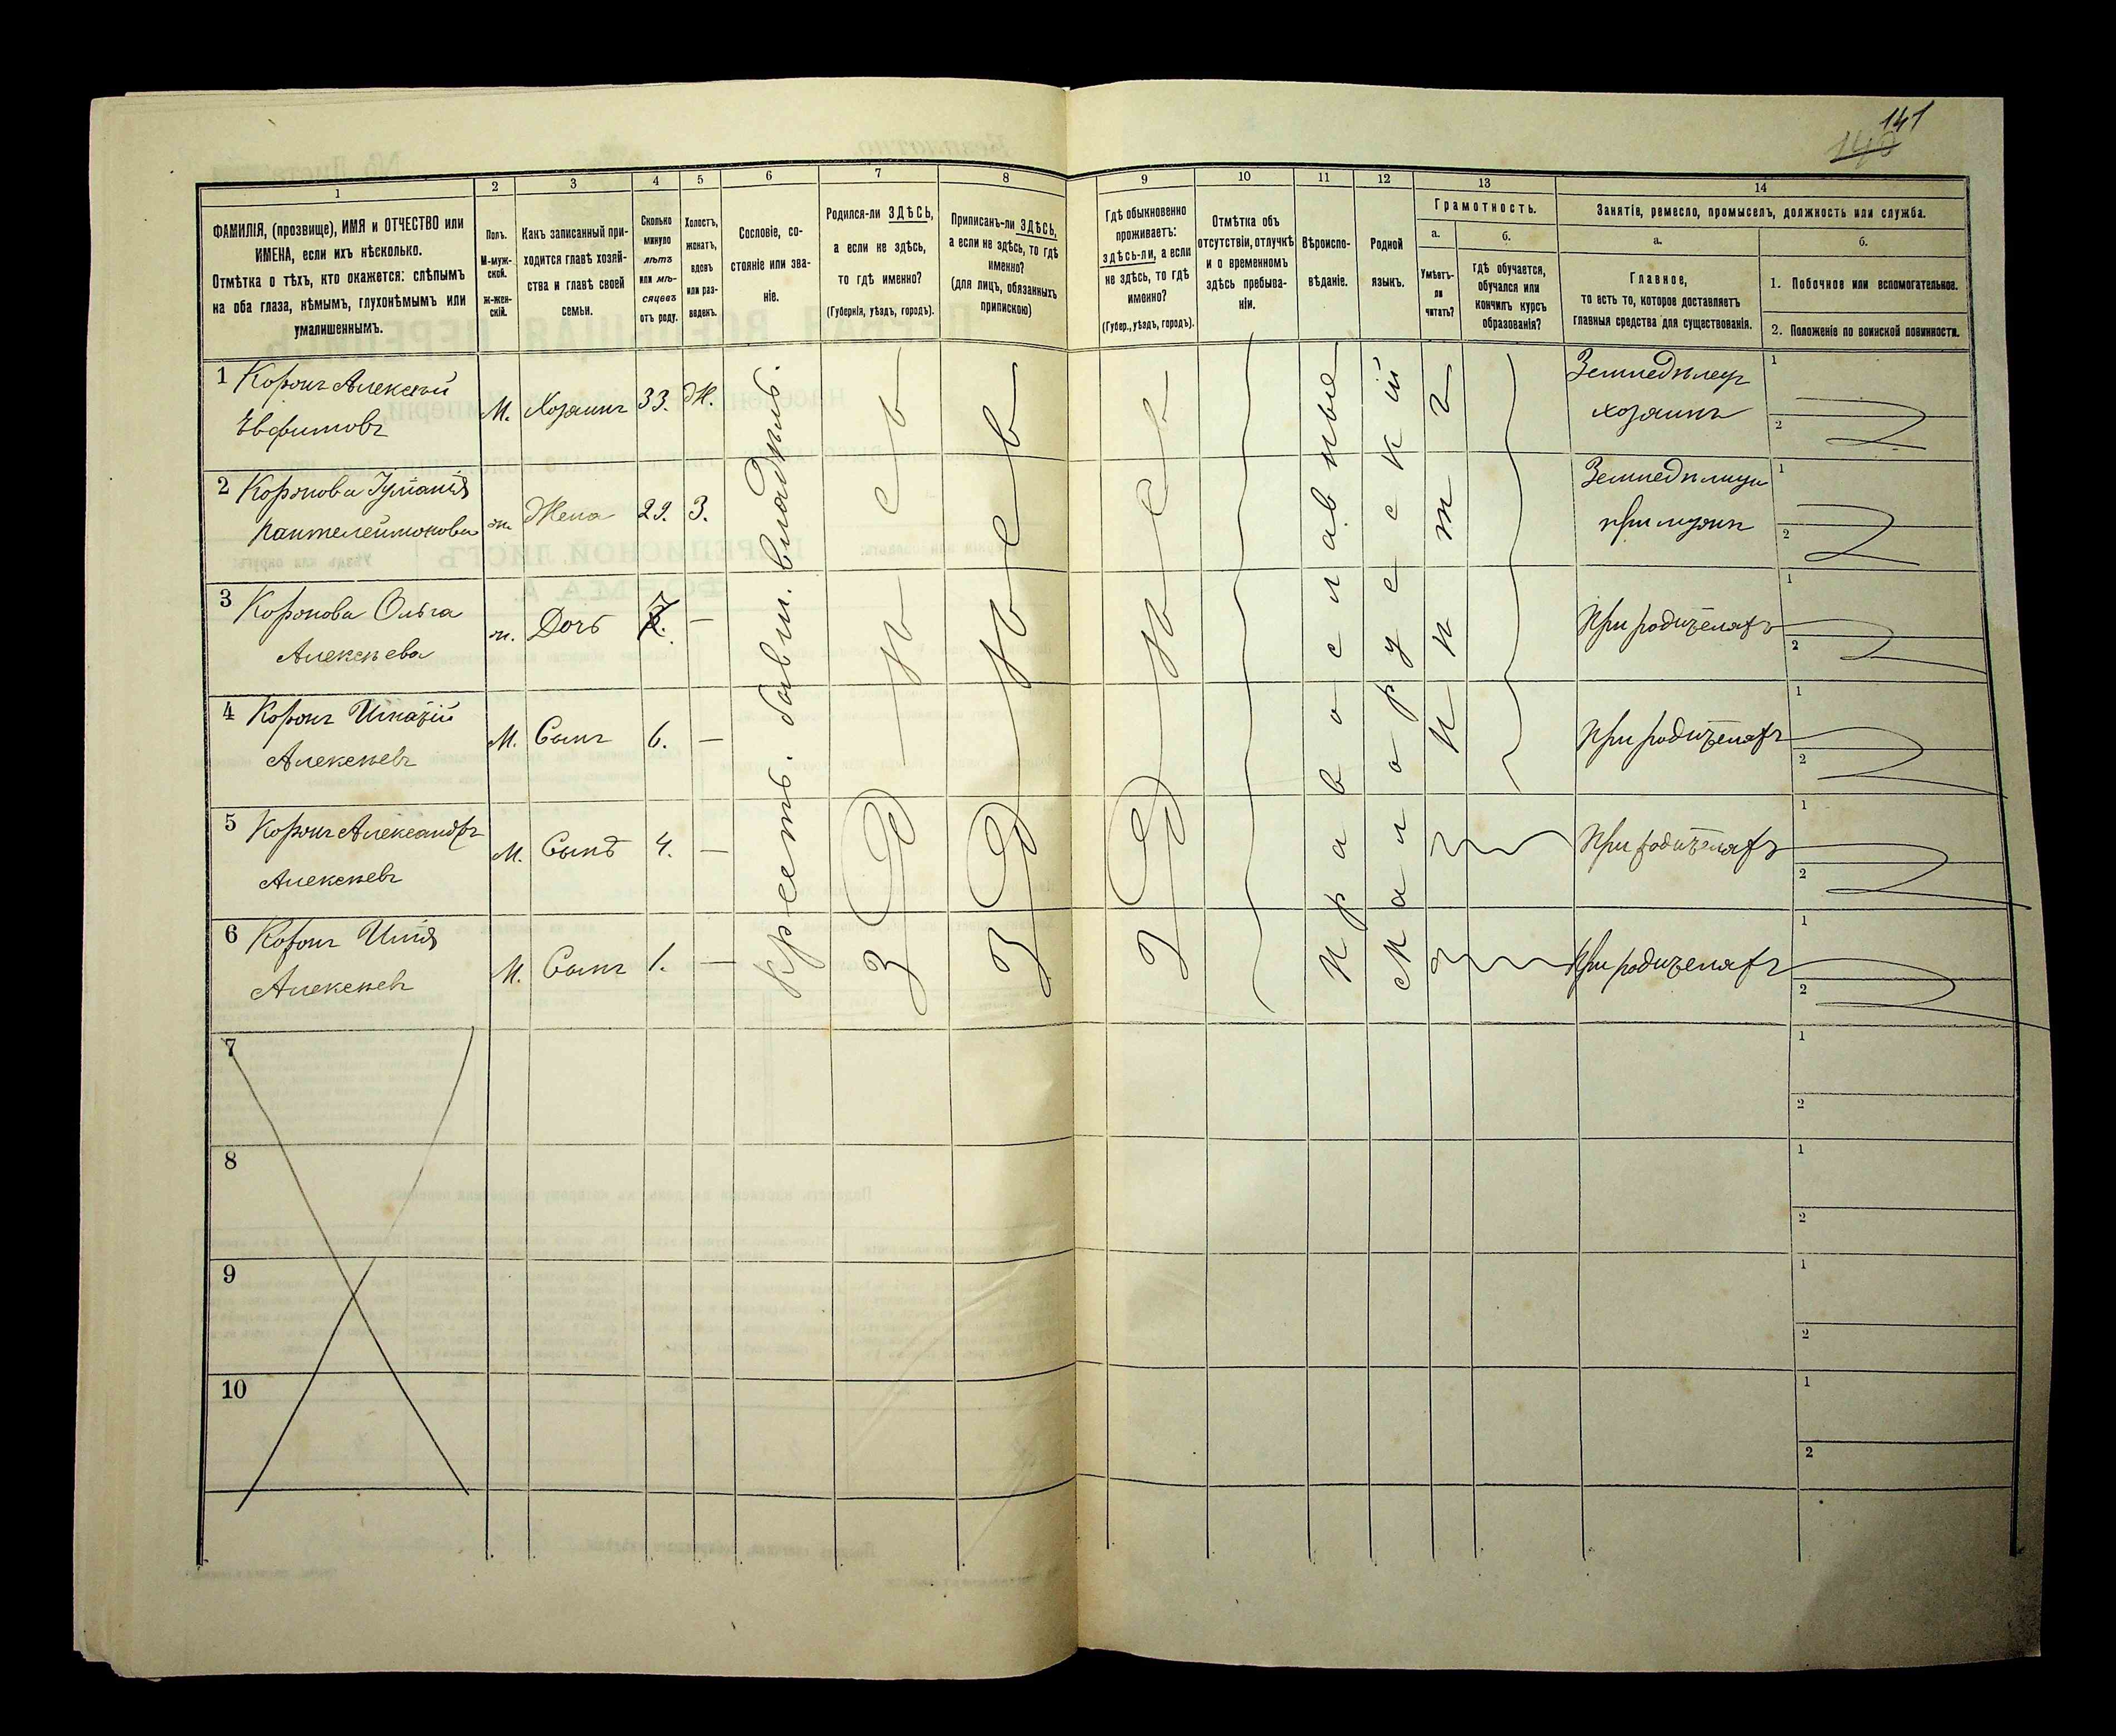 141
140
1
2
3
4
5
6
7
8
9
10
11
12
13
14
ФАМИЛІЯ, (прозвище), ИМЯ и ОТЧЕСТВО или
ИМЕНА, если ихъ нѣсколько.
Отмѣтка о тѣхъ, кто окажется: слѣпымъ
на оба глаза, нѣмымъ, глухонѣмымъ или
умалишеннымъ.
Полъ.
М-муж-
ской.
Ж-жен-
скій.
Какъ записанный при-
ходится главѣ хозяй-
ства и главѣ своей
семьи.
Сколько
минуло
лѣтъ
или мѣ-
сяцевъ
отъ роду.
Холостъ,
женатъ,
вдовъ
или раз-
веденъ.
Сословіе, со-
стояніе или зва-
ніе.
Родился-ли ЗДѢСЬ,
а если не здѣсь,
то гдѣ именно?
(Губернія, уѣздъ, городъ).
Приписанъ-ли ЗДѢСЬ,
а если не здѣсь, то гдѣ
именно?
(для лицъ, обязанныхъ
припискою)
Гдѣ обыкновенно
проживаетъ:
здѣсь-ли, а если
не здѣсь, то гдѣ
именно?
(Губер., уѣздъ, городъ).
Отмѣтка объ
отсутствіи, отлучкѣ
и о временномъ
здѣсь пребыва-
ніи.
Вѣроиспо-
вѣданіе.
Родной
языкъ.
Грамотность.
а.
б.
Умѣетъ-
ли
читать?
Гдѣ обучается,
обучался или
кончилъ курсъ
образованія?
Занятіе, ремесло, промыселъ, должность или служба.
а.
б.
Главное,
то есть то, которое доставляетъ
главныя средства для существованія.
1. Побочное или вспомогательное.
2. Положеніе по воинской повинности.
1 Коронъ Алексѣй
Евфимовъ
М. Хозяинъ 33. Ж.
Земледѣлецъ
хозяинъ
1
2
2 Коронова Іуліанія
Пантелеймонова
ж. Жена 29. З.
Земледѣлица
при мужѣ
1
2
3 Коронова Ольга
Алексѣева
ж. Дочь 7. —
При родителяхъ
1
2
4 Коронъ Игнатій
Алексѣевъ
М. Сынъ 6. —
При родителяхъ
1
2
5 Коронъ Александръ
Алексѣевъ
М. Сынъ 4. —
При родителяхъ
1
2
6 Коронъ Илія
Алексѣевъ
М. Сынъ 1. —
При родителяхъ
1
2
крест. бывш. владѣль.
здѣсь
здѣсь
здѣсь
Православные
Малорусскій
нѣтъ
7
1
2
8
1
2
9
1
2
10
1
2